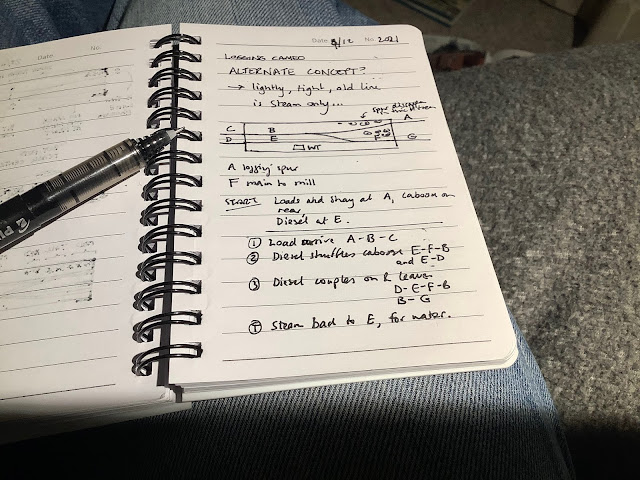 Date
No.
Date 5/12 No. 2021
LOGGING CAMEO
ALTERNATE CONCEPT?
→ lightly, tight, old line
is steam only...
spur disappears
A
C B
D E F G
WT
A loggin' spur
F main to mill
START Loads and Shay at A, caboose on
rear,
Diesel at E.
① Load arrive A-B-C
② Diesel shuffles caboose E-F-B
and E-D
③ Diesel couples on & leaves
D-E-F-B
B-G
Steam back to E, for water.